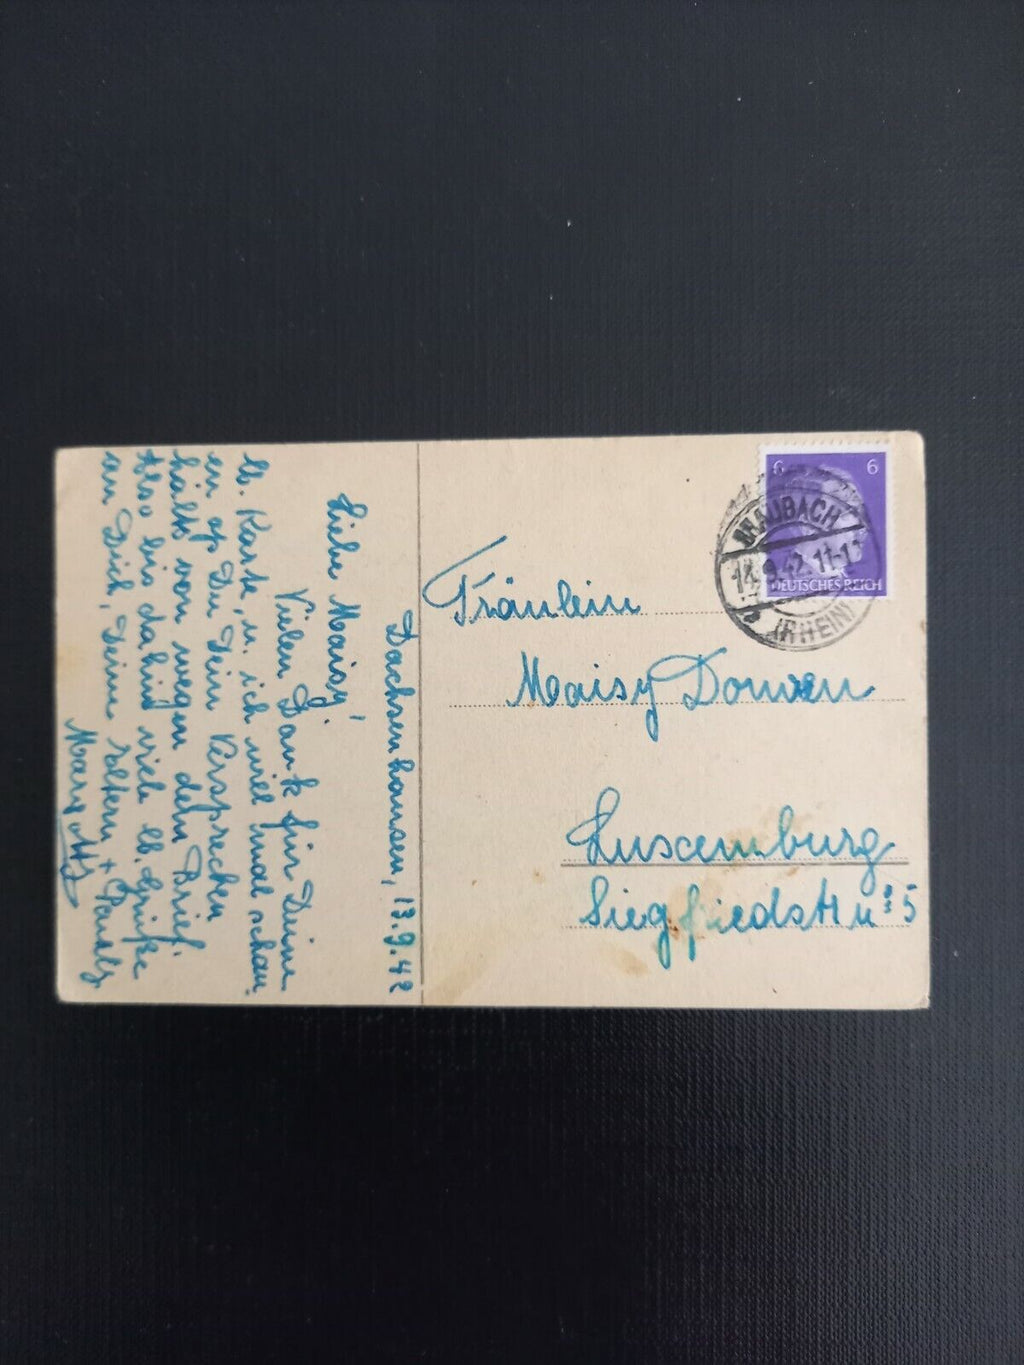 Dachsenhausen, 13.9.42
Liebe Maisy!
Vielen Dank für Deine
lb. Karte, u. ich will mal schau
en op Du Dein Versprechen
hälts von wegen dem Brief.
Also bis dahin viele lb. Grüße
an Dich, Deine Eltern +
Margot
Fräulein
Maisy
Luxemburg
Siegfriedstr 5
6 6
DEUTSCHES REICH
BRAUBACH
14.9.42
(RHEIN)